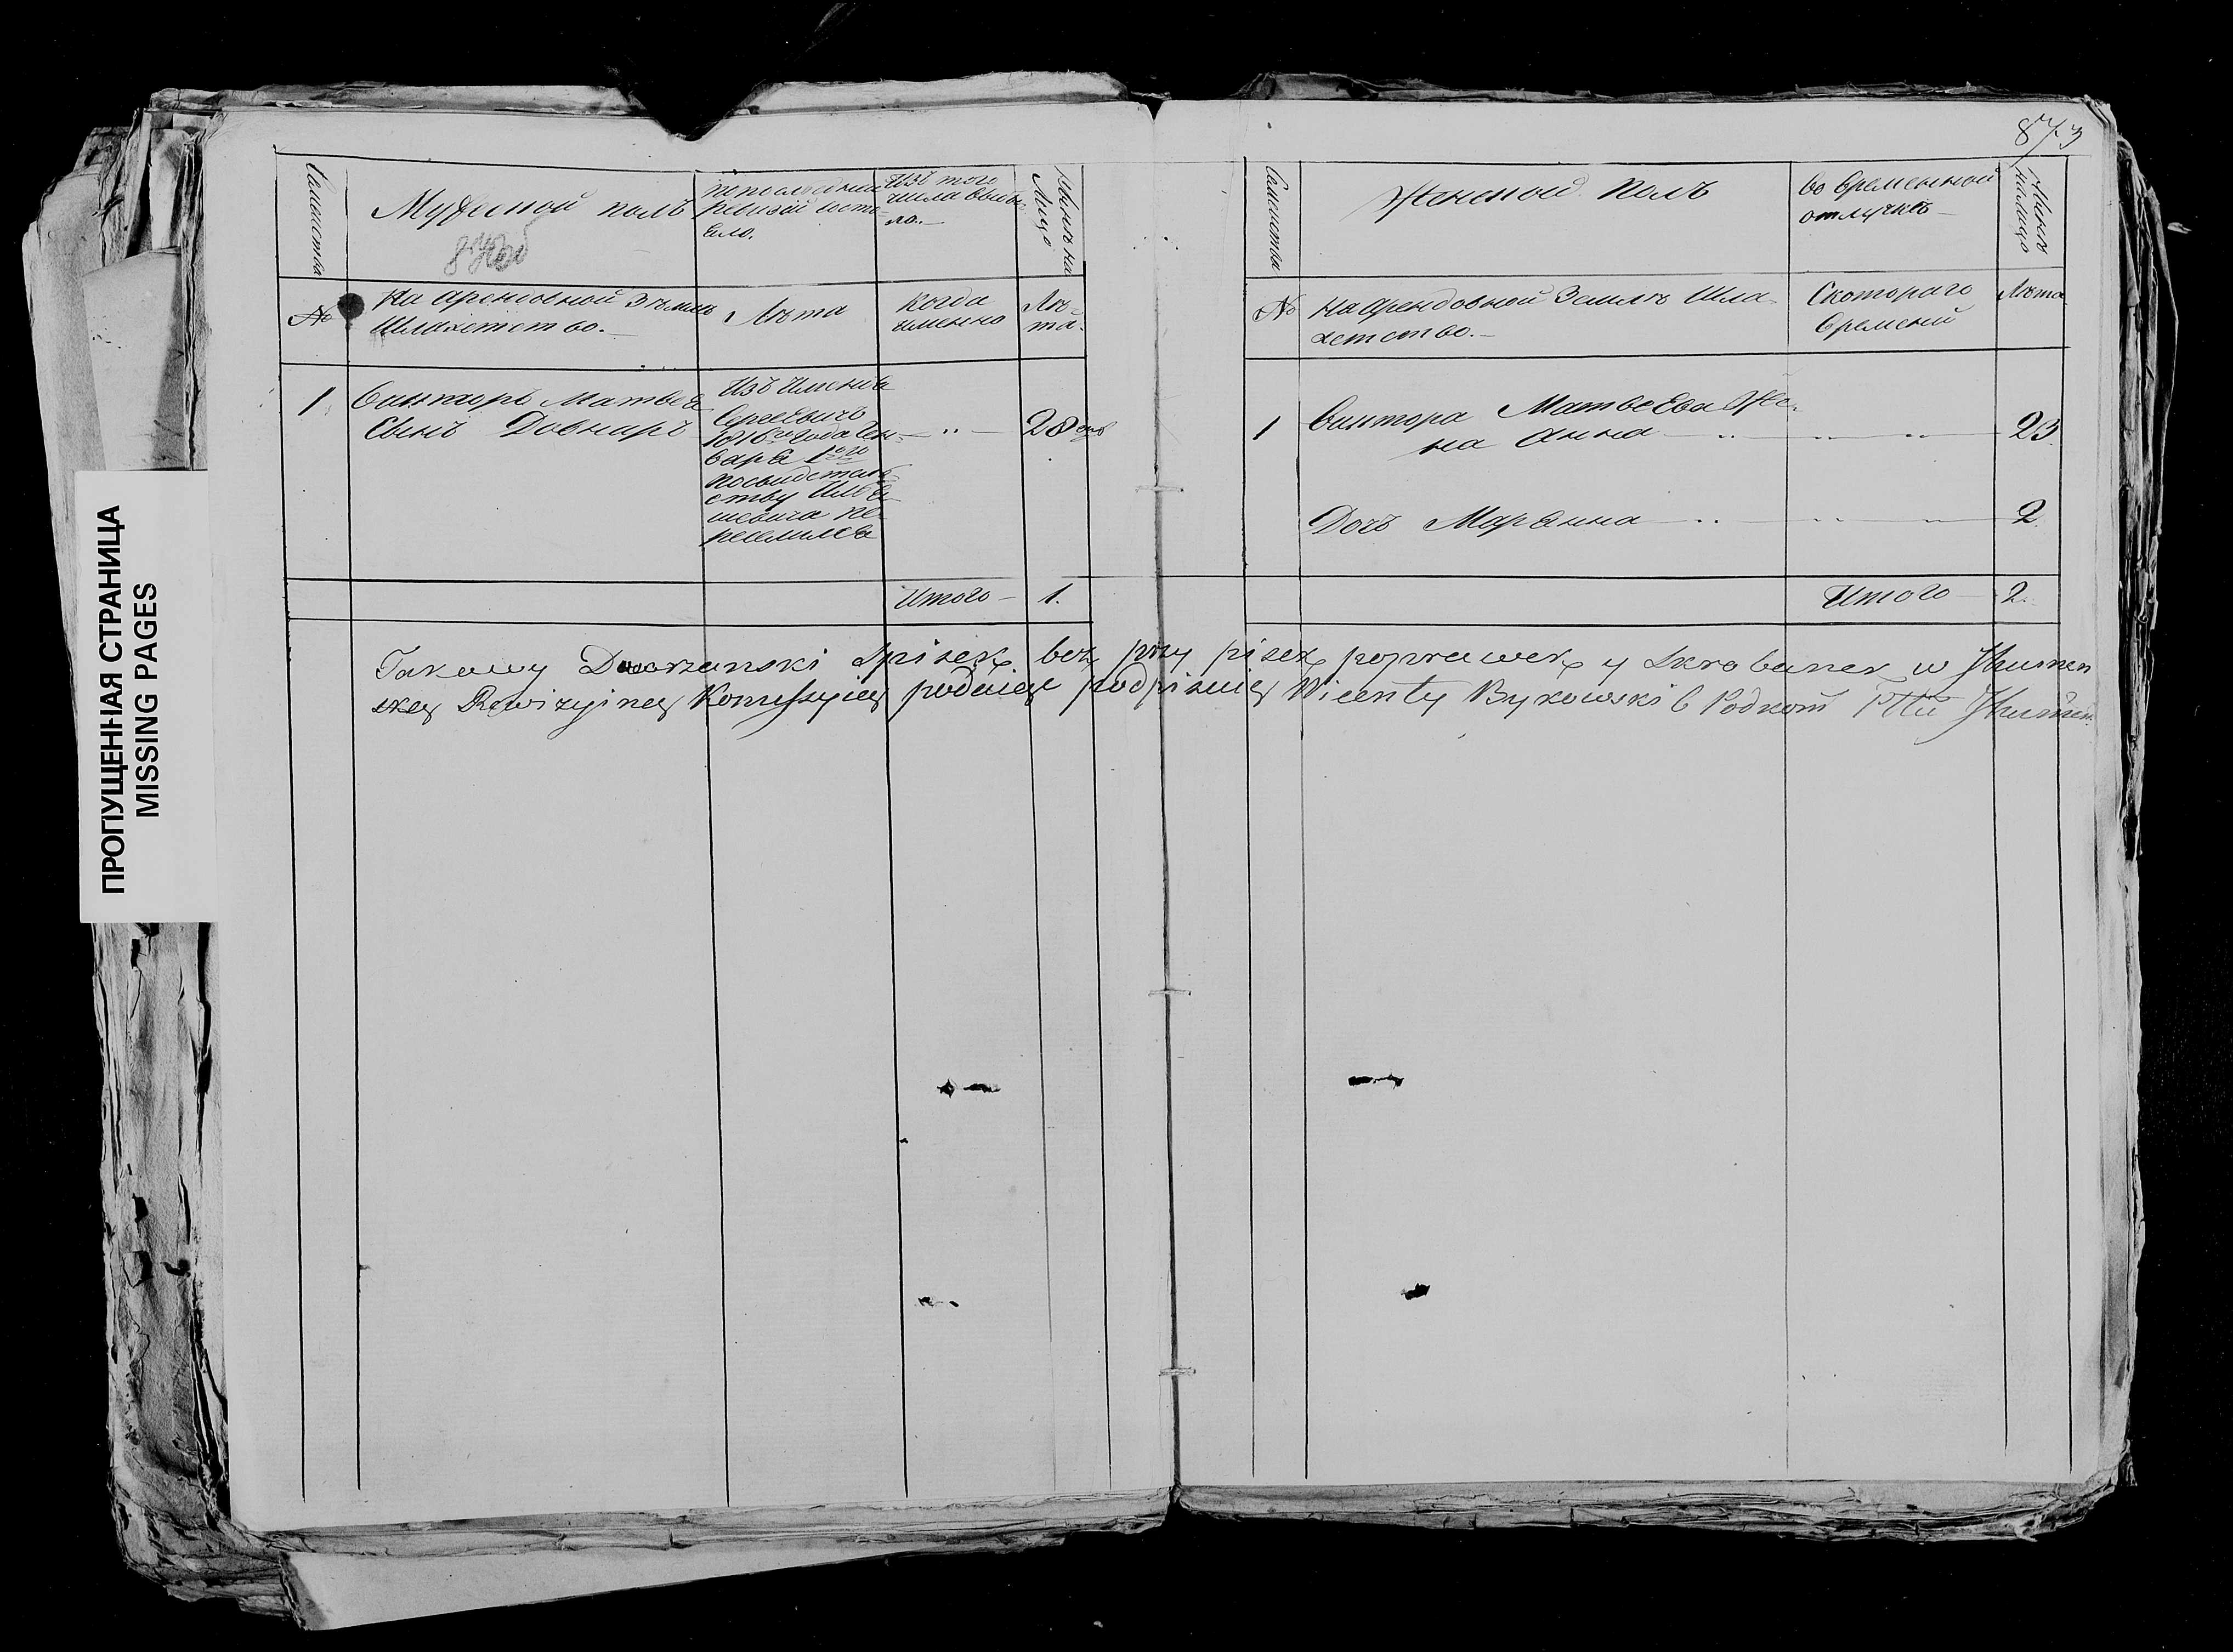 ПРОПУЩЕННАЯ СТРАНИЦА
MISSING PAGES
873
Семейства
Мужеской полъ
по последней
ревизіи состо
яло.
Изъ того
числа выбы
ло.
Нынѣ на
Лицо
№
На арендовной Земли
Шляхетство.
Лѣта
когда
именно
Лѣ-
та.
1
Викторъ Матвея
Сынъ Довнаръ
Изъ Имѣнія
Сергеевичъ
1816го года Ген-
варя 1го
ству
28
Итого
1.
Семейства
Женской полъ
во временной
отлучкѣ
Нынѣ
налицо
№
На Арендовной Землѣ Шля-
хетство.
Скотораго
времени
Лѣта
1
Виктора Матвеева Же-
на Анна
23
Дочь Марьянна
2
Итого
2.
Takowy Dworzanski Spisek bez przy pisek poprawek y skrobanek w Jhumen
skey Rewizyiney Komissyiey podaiąc podpisuię Wicenty Bykowski b Podkom Pttu Jhumen.